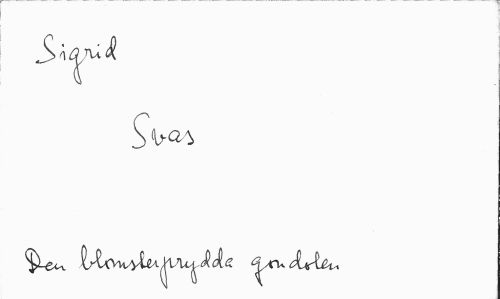 Sigrid
Svas
Den blomsterprydda gondolen